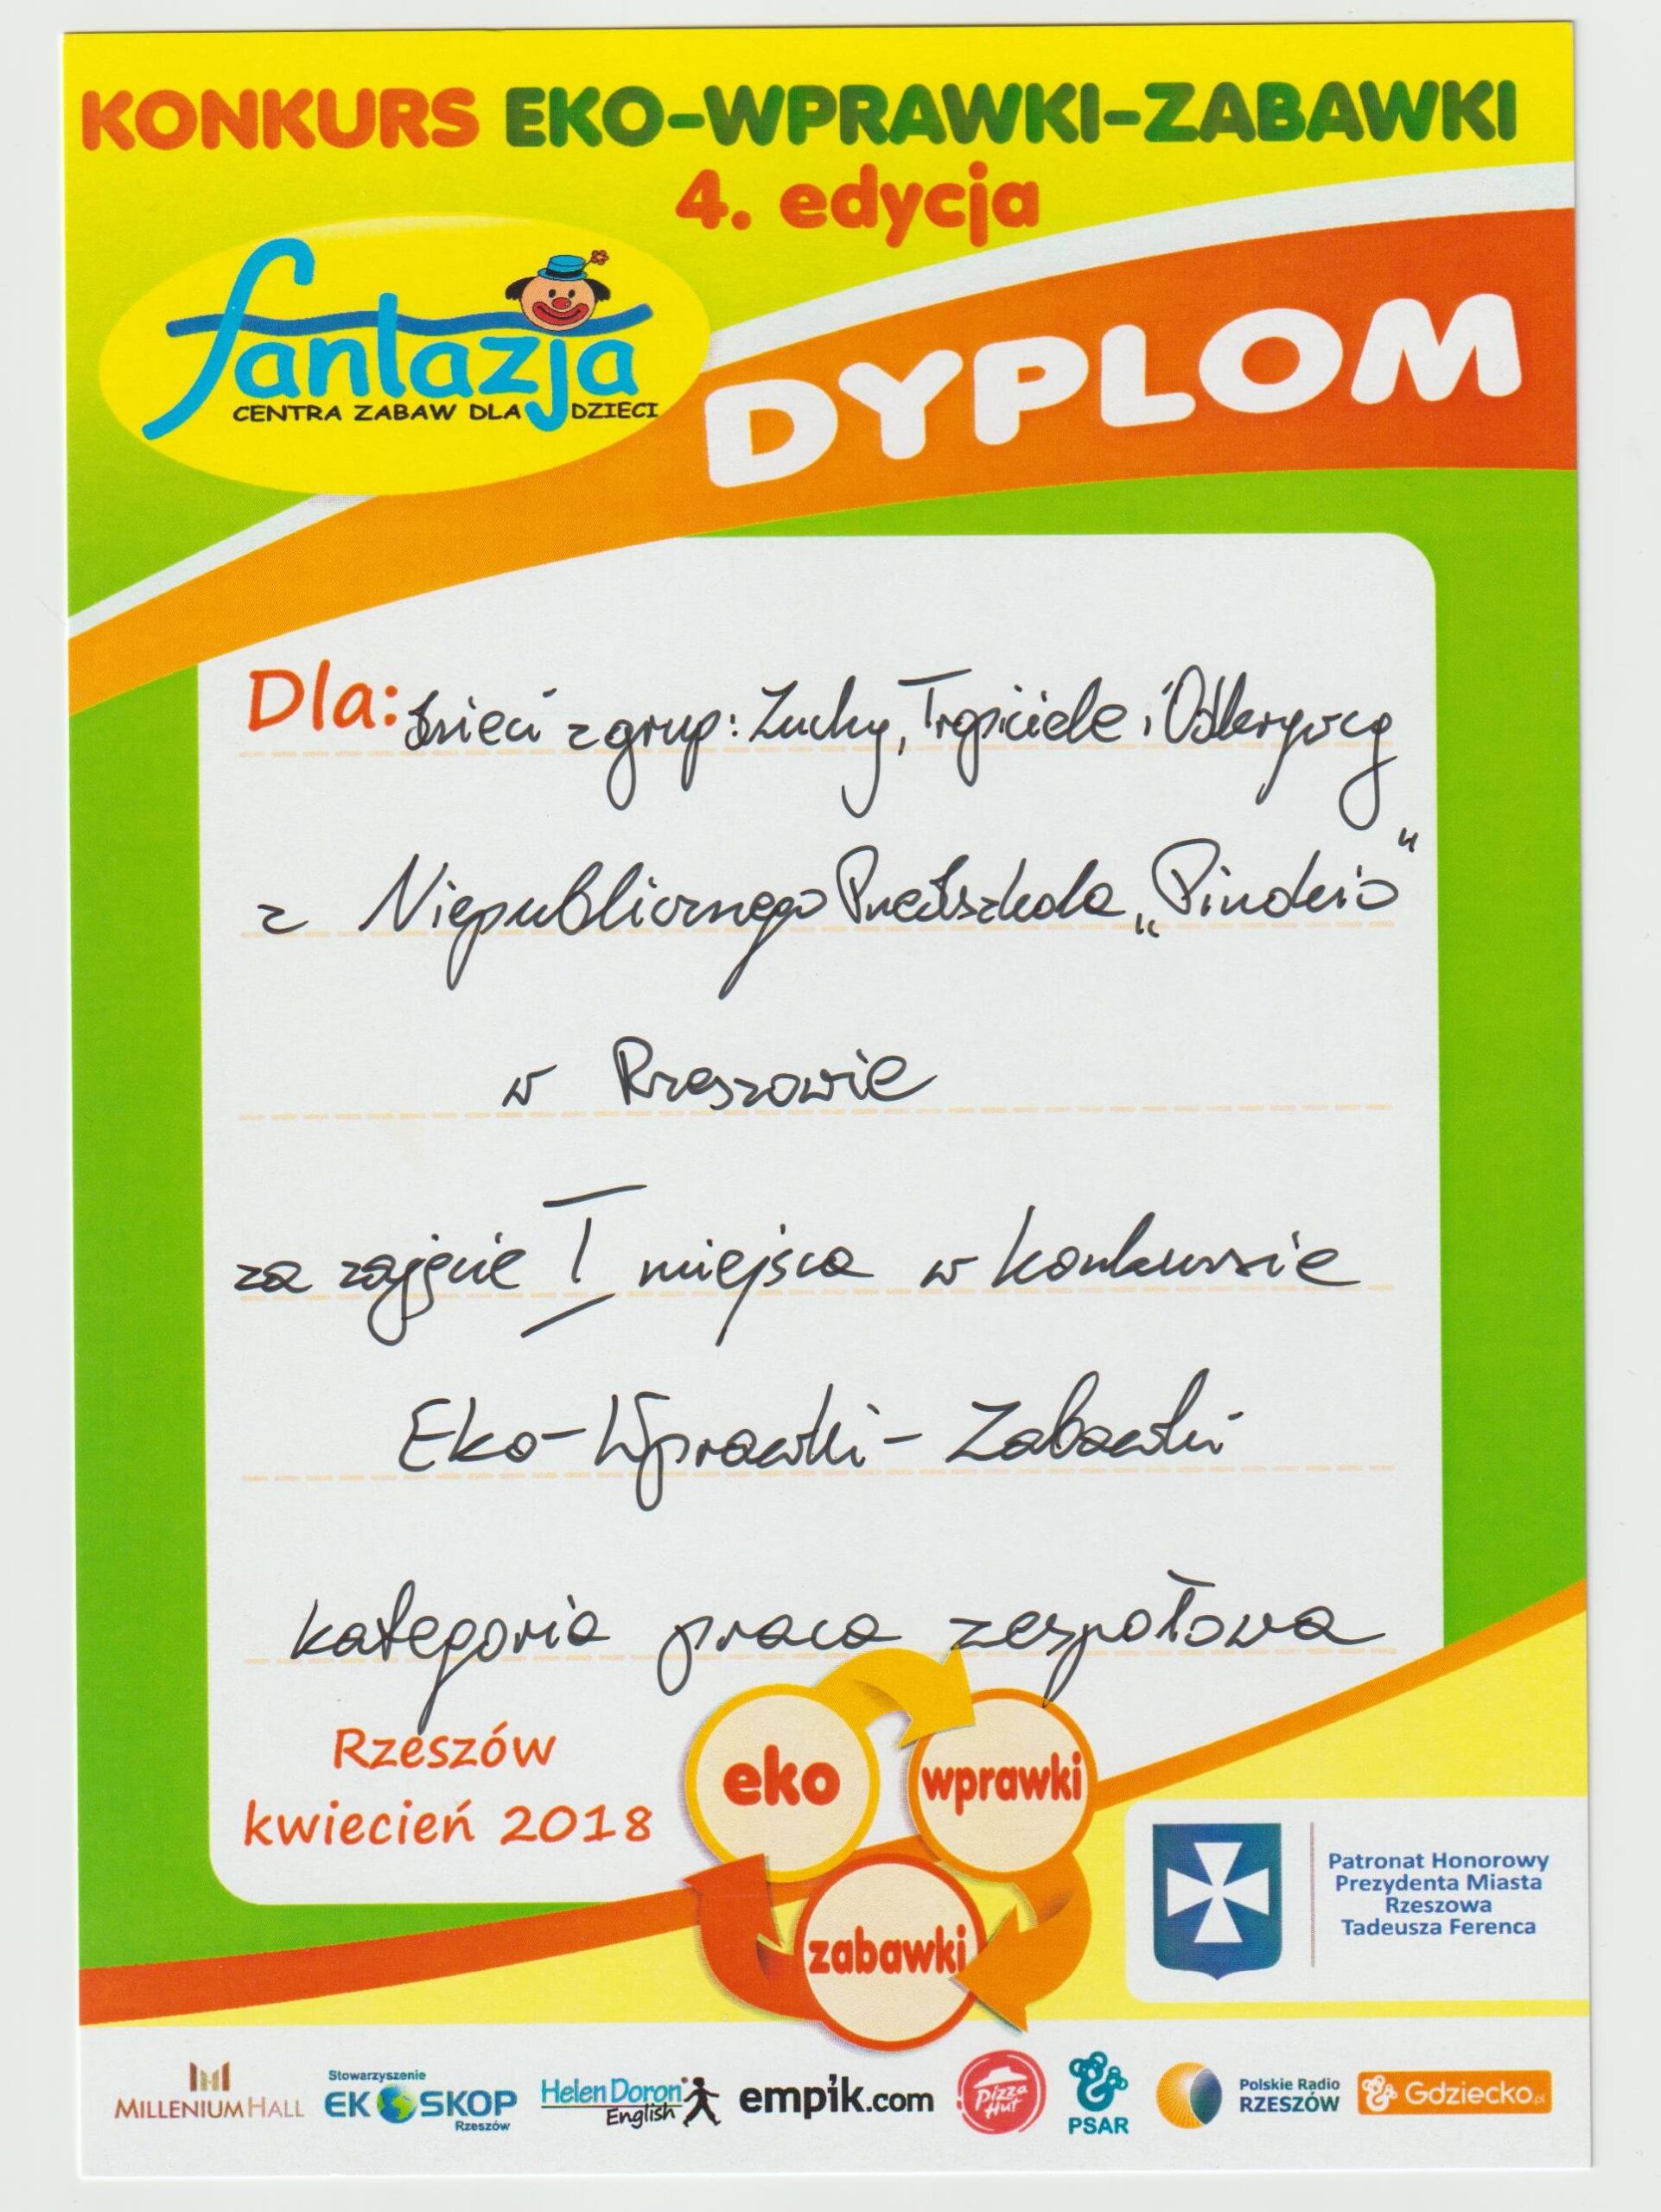 KONKURS EKO-WPRAWKI-ZABAWKI
4. edycja
fantazja
CENTRA ZABAW DLA DZIECI
DYPLOM
Dla: dzieci z grup: Zuchy, Tropiciele i Odkrywcy
z Niepublicznego Przedszkola „Pinokio”
w Rzeszowie
za zajęcie I miejsca w konkursie
Eko-Wprawki-Zabawki
kategoria praca zespołowa
Rzeszów
kwiecień 2018
eko
wprawki
zabawki
Patronat Honorowy
Prezydenta Miasta
Rzeszowa
Tadeusza Ferenca
MILLENIUM HALL
Stowarzyszenie
EKOSKOP
Rzeszów
Helen Doron
English
empik.com
Pizza
Hut
PSAR
Polskie Radio
RZESZÓW
Gdziecko.pl